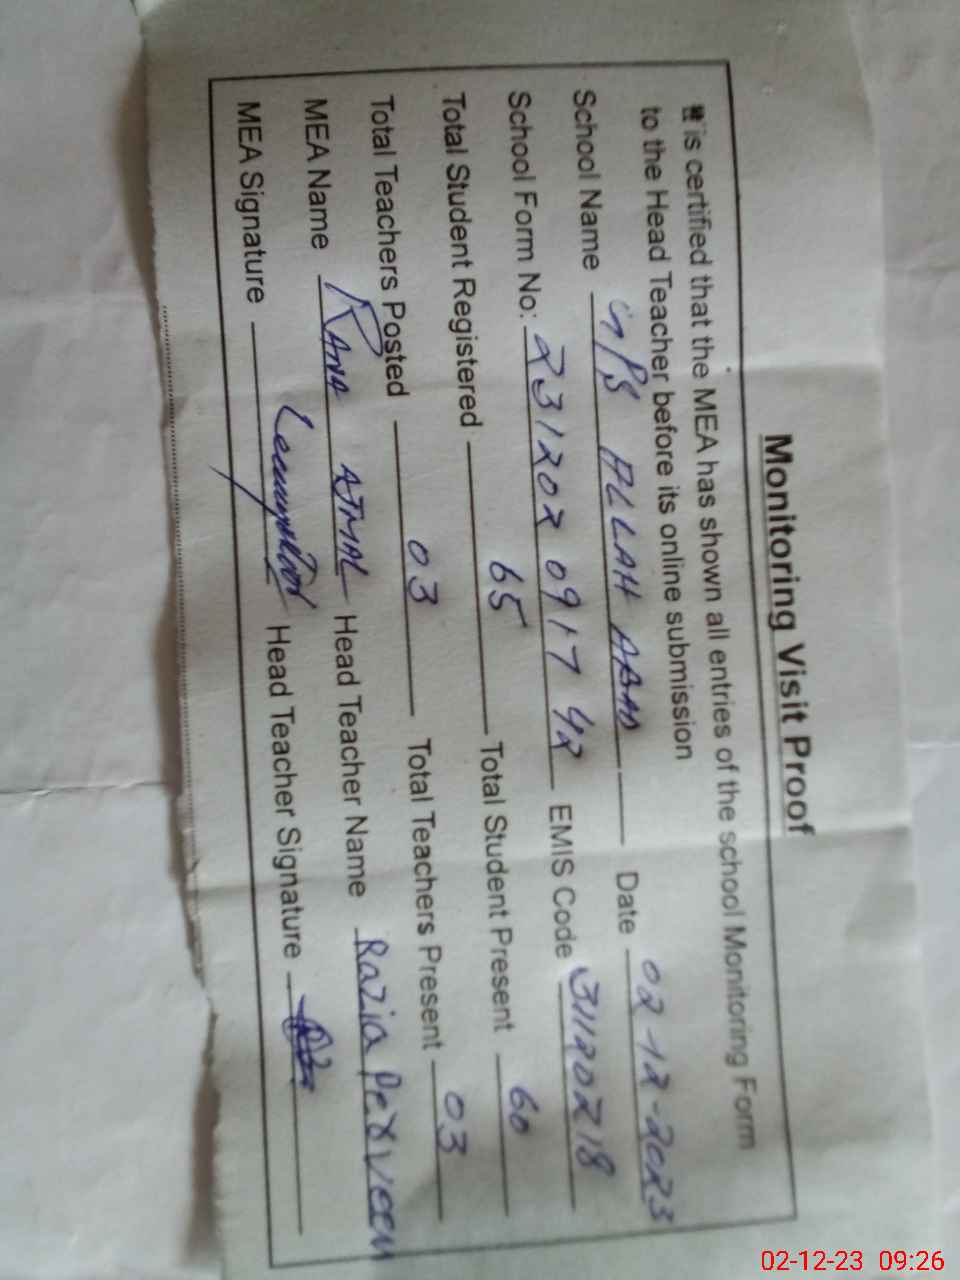 Monitoring Visit Proof
It is certified that the MEA has shown all entries of the school Monitoring Form
to the Head Teacher before its online submission
School Name GPS ALLAH ABAD Date 02-12-2023
School Form No: 231202 0917 42 EMIS Code 31120218
Total Student Registered 65 Total Student Present 60
Total Teachers Posted 03 Total Teachers Present 03
MEA Name RANA AJMAL Head Teacher Name Razia Perveen
MEA Signature Head Teacher Signature
02-12-23 09:26